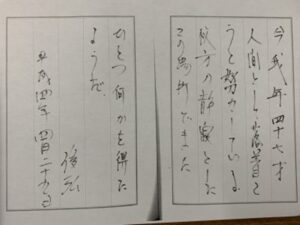 今我年四十七才
人間として底着を
うと努力している
彼方の静寂とした
この場所でまた
ひとつ何かを得た
ようだ
平成四年 四月二十九日